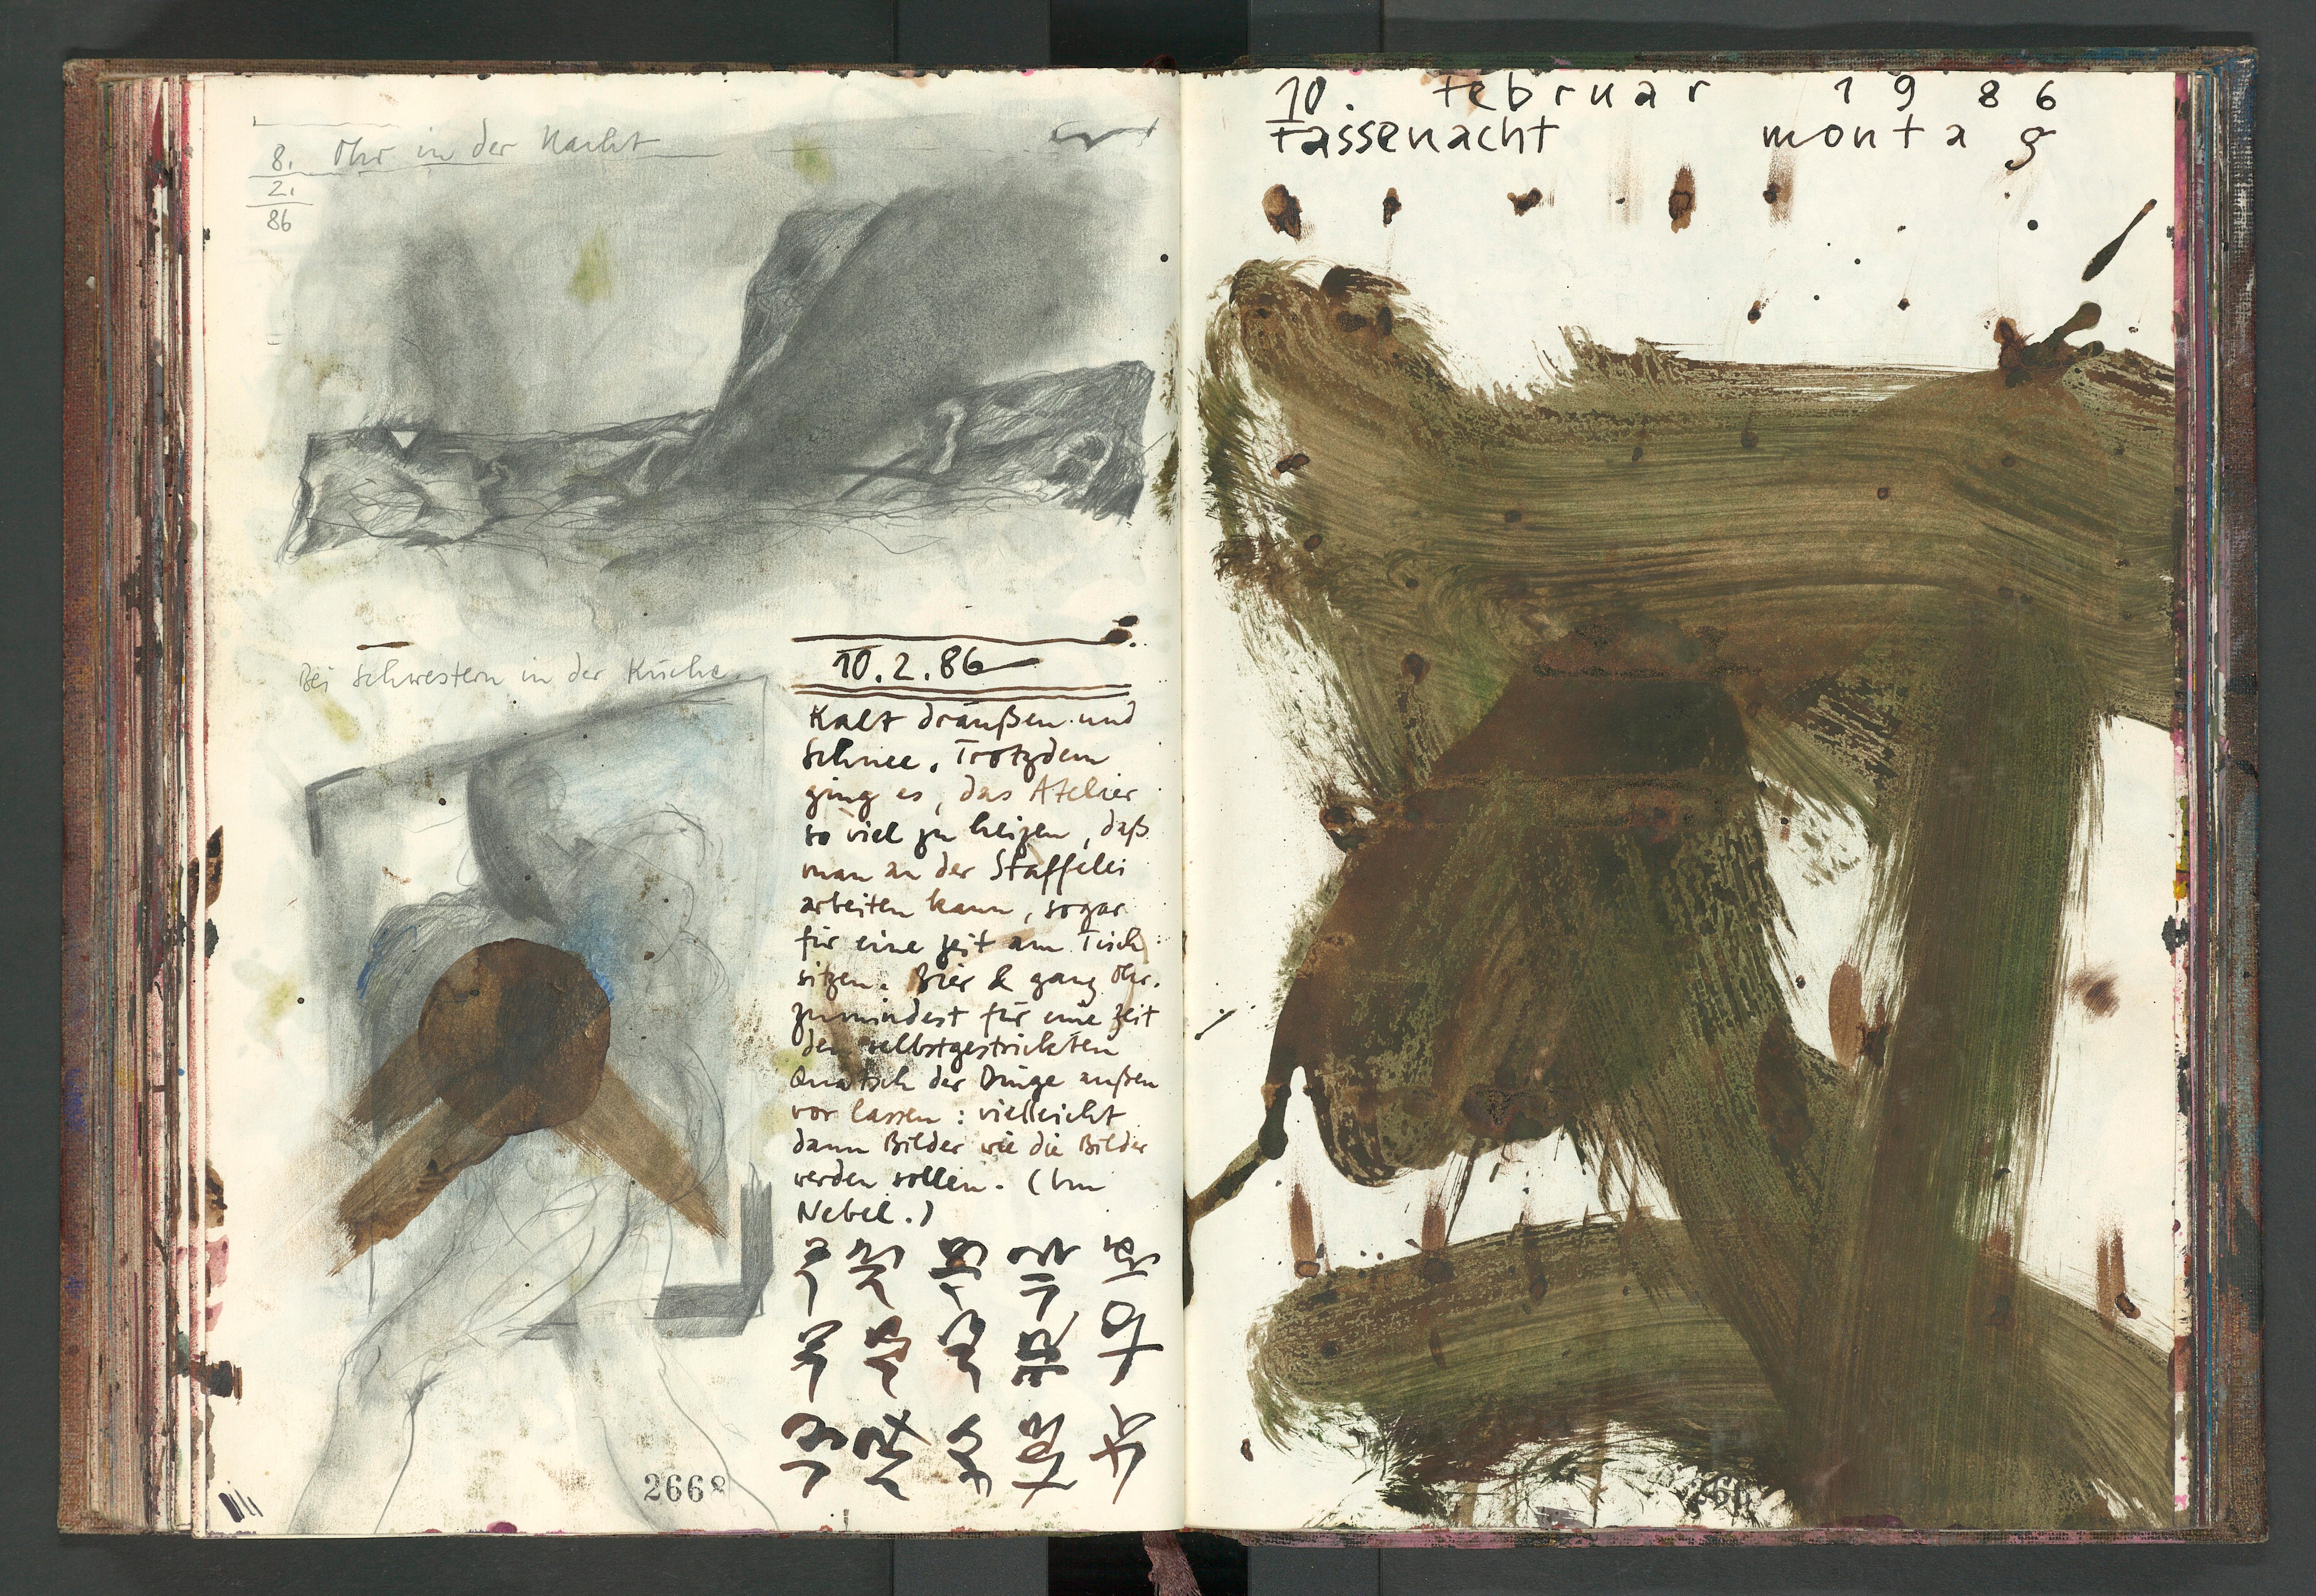 8. Ohr in der Nacht
2.
86
Bei Schwestern in der Küche.
10.2.86
Kalt draußen und
Schnee. Trotzdem
ging es, das Atelier
so viel zu heizen, daß
man an der Staffelei
arbeiten kann, sogar
für eine Zeit am Tisch
sitzen. Bier & ganz Ohr.
zumindest für eine Zeit
den selbstgestrickten
Quatsch der Dinge außen
vor lassen: vielleicht
dann Bilder wie die Bilder
werden sollen. (Im
Nebel.)
2668
10. februar 1986
fassenacht montag